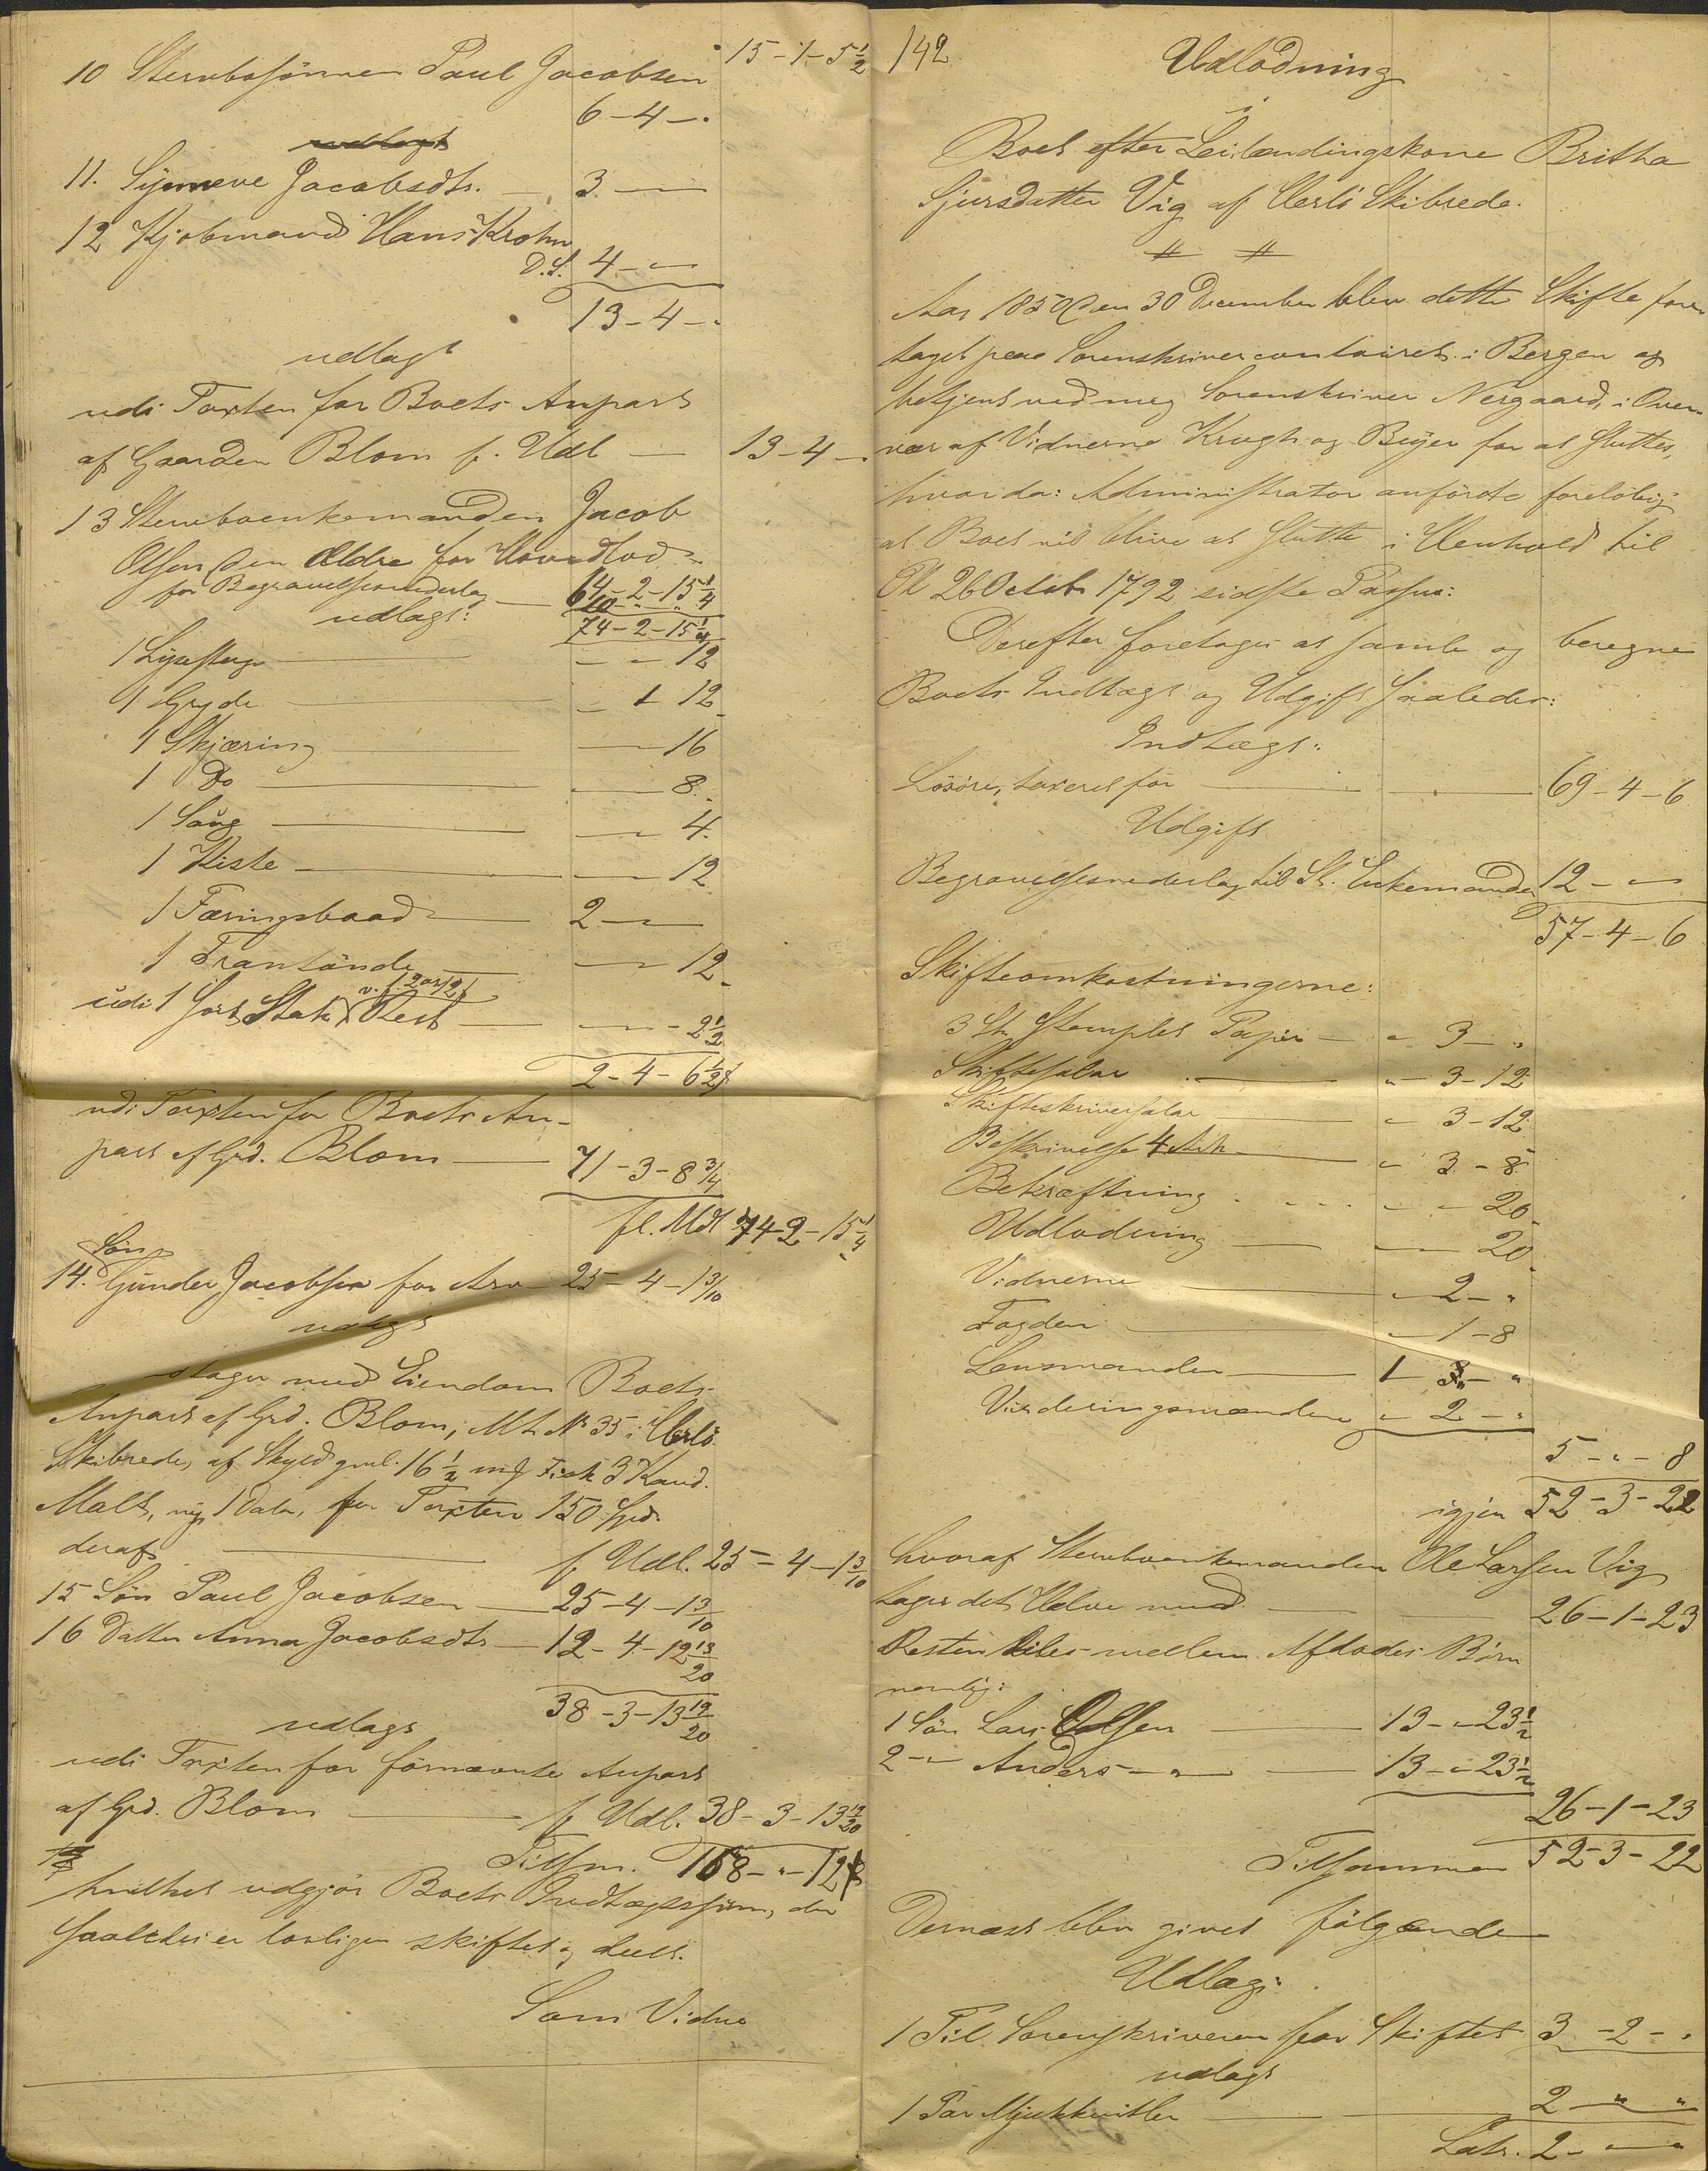 15-1-5½
10 Stervbosønnen Paul Jacobsen
6-4-"
udlagt
11. Synneve Jacobsdtr. — 3 —
12 Kjøbmand Hans Krohn
D.S. 4 —
13-4-"
udlagt
udi Taxten for Boets Anpart
af Gaarden Blom f. Udl — 13-4-"
13 Stervboenkemanden Jacob
Olsen den Ældre for Hovedlod
64-2-15¼
for Begravelsesvederlag — 10 - " - "
udlagt: 74-2-15¼
1 Lysestage — 12
1 Gryde — 1 12
1 Skjæring — 16
1 Do — 8
1 Saug — 4
1 Kiste — 12
1 Færingsbaad — 2 —
1 Trantønde — 12
udi 1 sort Stak v. f. 2 ort 12 ß Rest — 2½
2-4-6½ ß
udi Taxten for Boets An-
part af Grd. Blom — 71-3-8¾
fl. Udl 74-2-15¼
14. Søn Gunder Jacobsen for Arv — 25-4-1 3/10
udlagt
tager med Eiendom Boets
Anpart af Grd. Blom, Mt. No 35 i Herlø
Skibrede, af Skyld gml. 16½ mg Fisk 3 Kand.
Malt, ny 1 Daler, for Taxten 150 Spd.
deraf — f Udl. 25-4-1 3/10
15 Søn Paul Jacobsen — 25-4-1 3/10
16 Datter Anna Jacobsdtr — 12-4-12 13/20
38-3-13 19/20
udlagt
udi Taxten for førnævnte Anpart
af Grd. Blom — f Udl. 38-3-13 19/20
Tilsm. 168-"-12 ß
hvilket udgjør Boets Indtægtssum, der
saaledes er lovligen skiftet og deelt.
Som Vidne
142
Udlodning
i
Boet efter Leilændingskone Britha
Sjursdatter Vig af Herlø Skibrede.
Aar 1850 den 30 December blev dette Skifte fore-
taget paa Sorenskrivercontoiret i Bergen og
betjent ved mig Sorenskriver Nergaard, i Over-
vær af Vidnerne Krogh og Beyer for at sluttes,
hvorda: Administrator anførte foreløbig
at Boet vil blive at slutte i Henhold til
Pl 26 Octob 1792 sidste Passus:
Derefter foretages at samle og beregne
Boets Indtægt og Udgift saaledes:
Indtægt:
Løsøre, taxeret for — 69-4-6
Udgift
Begravelsesvederlag til St. Enkemanden 12 —
57-4-6
Skifteomkostningerne:
3 St. Stemplet Papir — " 3 - "
Skiftesalar — " 3-12
Skifteskriversalar — " 3-12
Beskrivelse 4 Ark — " 3-8
Bekræftning — " " 20
Udlodning — 20
Vidnerne — " 2 - "
Fogden — " 1-8
Lensmanden — 1 - 3 - "
Vurderingsmændene " 2 - "
5 - " - 8
igjen 52-3-22
hvoraf Stervboenkemanden Ole Larsen Vig
tager det Halve med — 26-1-23
Resten deles mellem Afdødes Børn
nemlig:
1 Søn Lars Olsen — 13-"-23½
2 — " Anders — " — 13-"-23½
26-1-23
Tilsammen 52-3-22
Dernæst blev givet følgende
Udlæg:
1 Til Sorenskriveren for Skiftet 3-2-"
udlagt
1 Par — 2 - " - "
Lats. 2 —